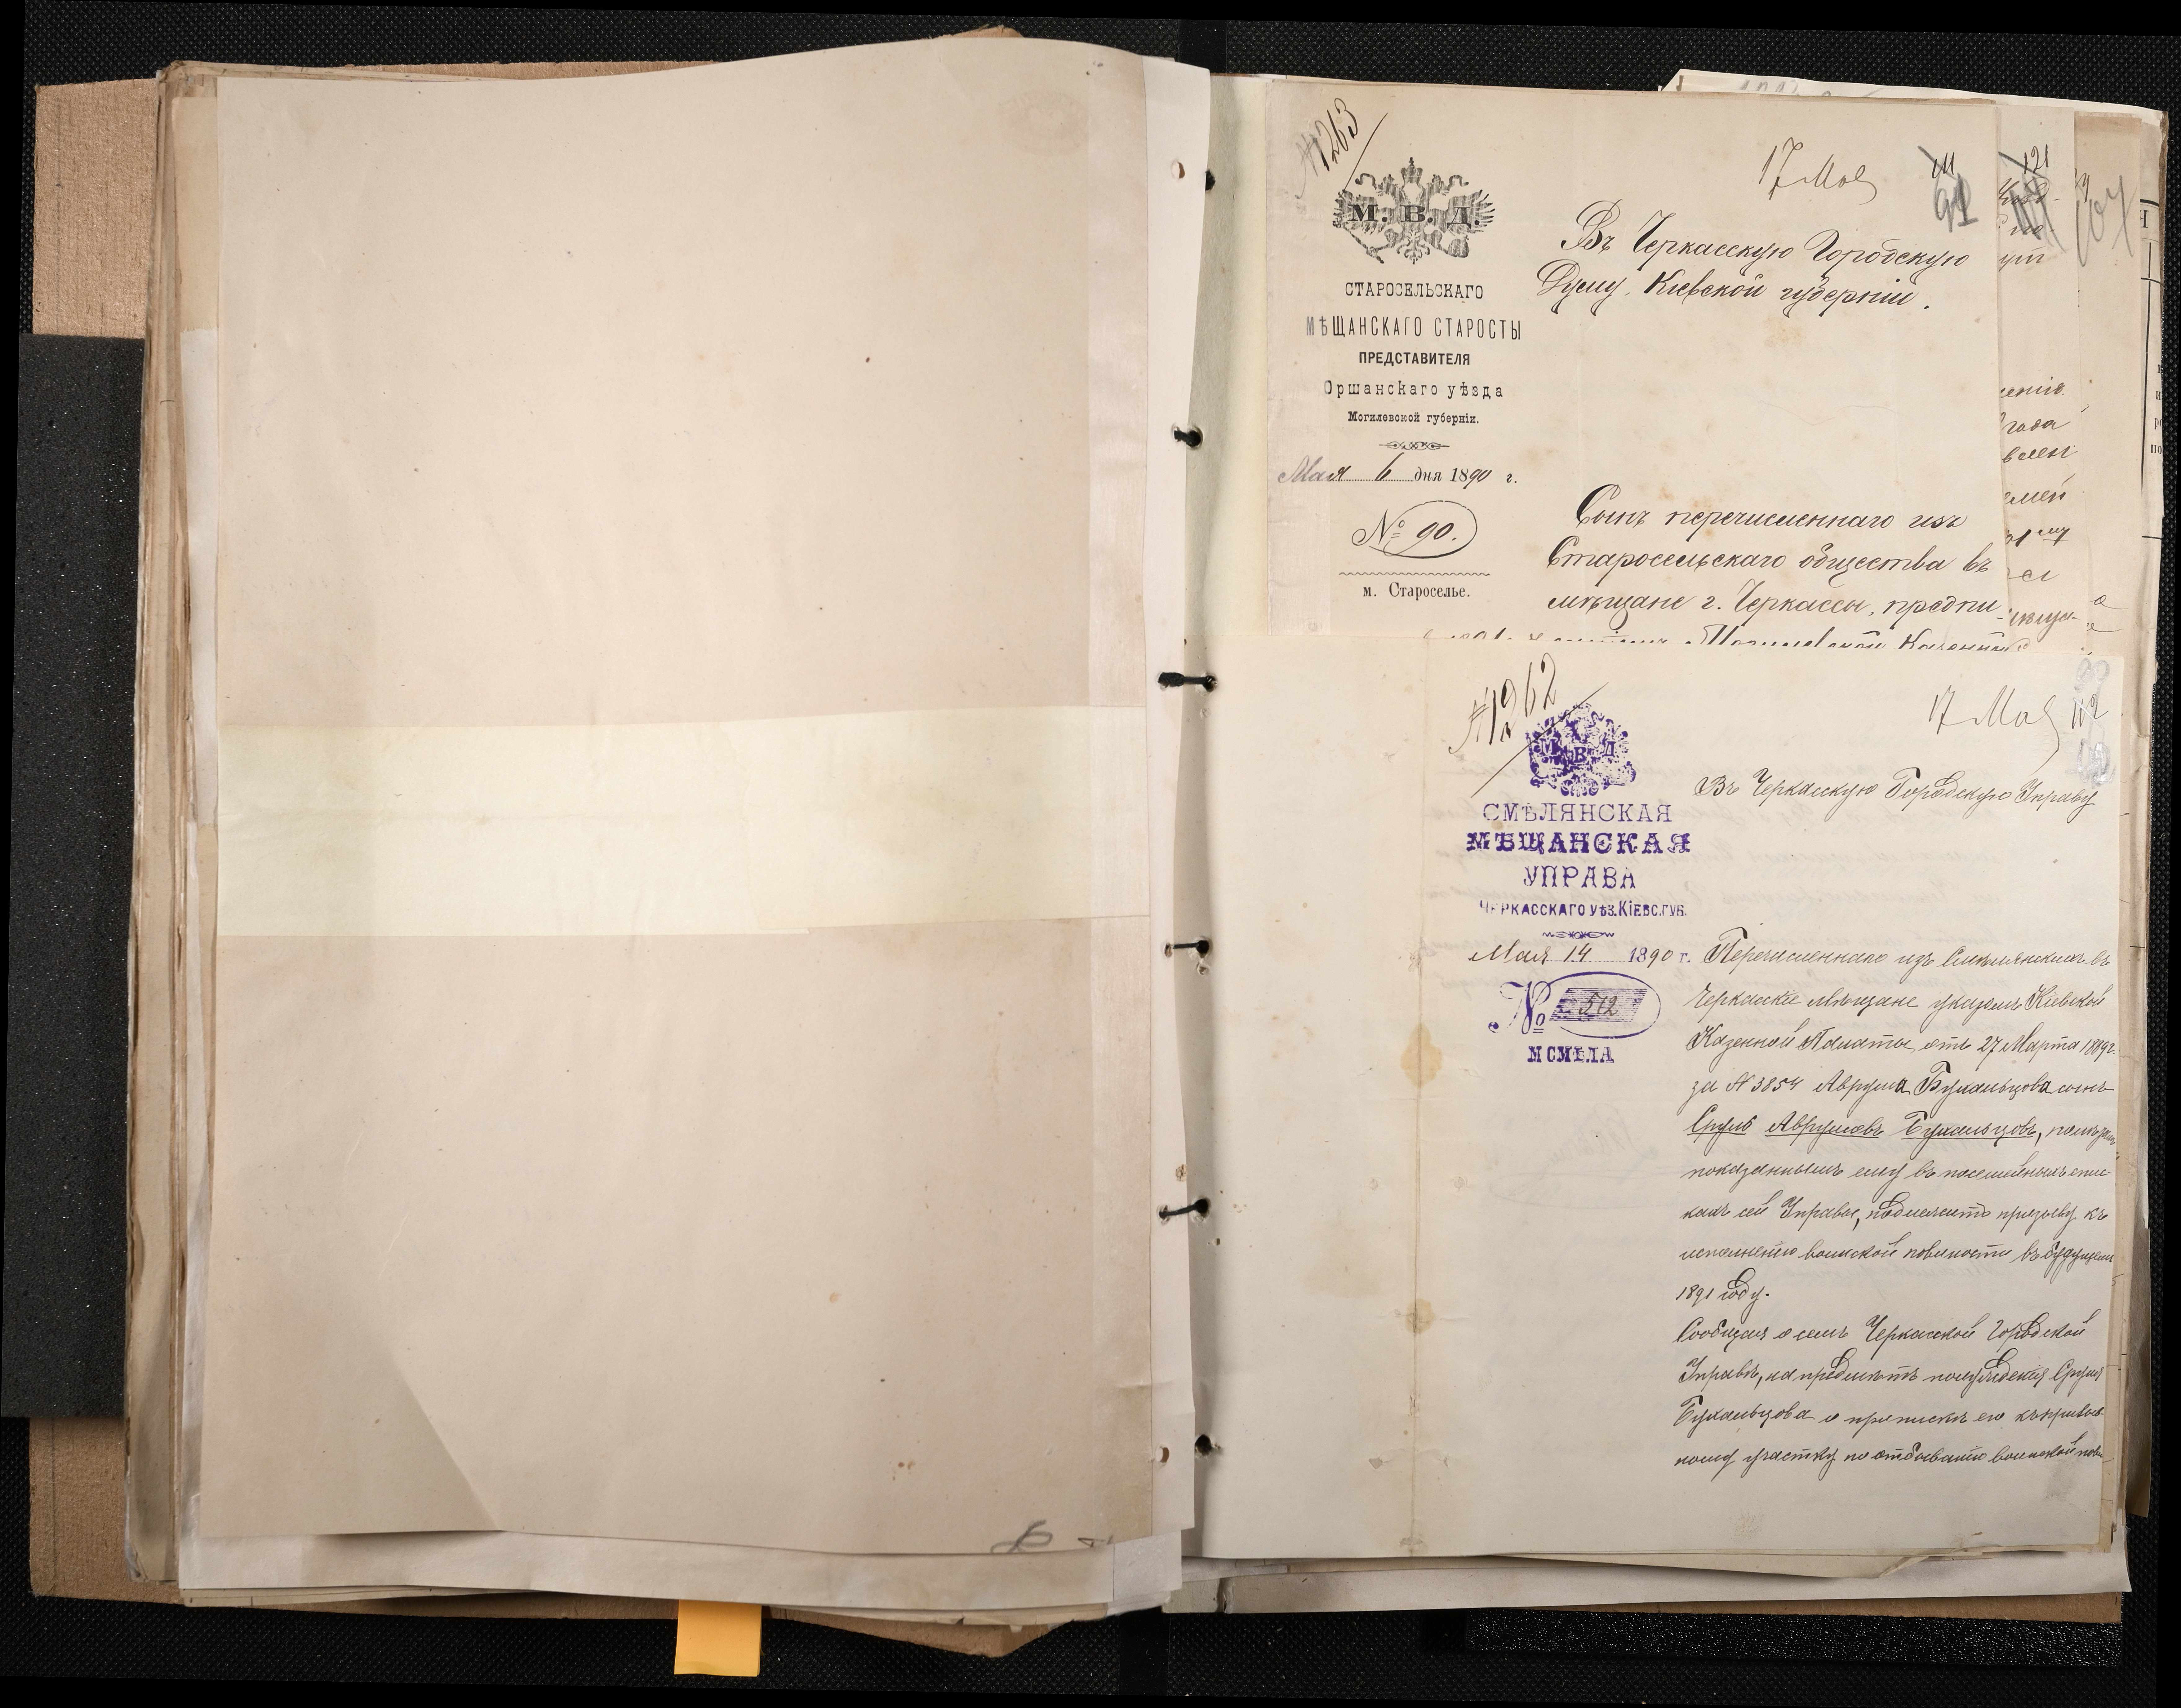 № 1263
17 Мая
111
91
М. В. Д.
СТАРОСЕЛЬСКАГО
МѢЩАНСКАГО СТАРОСТЫ
ПРЕДСТАВИТЕЛЯ
Оршанскаго уѣзда
Могилевской губерніи.
Мая 6 дня 1890 г.
№ 90.
м. Староселье.
Въ Черкасскую Городскую
Думу, Кіевской губерніи.
Сынъ перечисленнаго изъ
Старосельскаго общества въ
мѣщане г. Черкассы, предпи-
Могилевской Казенной
121
107
года
№ 1262
17 Мая
112
М. В. Д.
СМѢЛЯНСКАЯ
МѢЩАНСКАЯ
УПРАВА
ЧЕРКАССКАГО УѢЗ. КІЕВС. ГУБ.
Мая 14 1890 г.
№ 512
М СМѢЛА
Въ Черкасскую Городскую Управу
Перечисленнаго изъ Смѣлянскихъ въ
Черкасскіе мѣщане указомъ Кіевской
Казенной Палаты отъ 27 Марта 1889 г.
за № 3854 Аврума Бухальцова сынъ
Сруль Аврумовъ Бухальцовъ, по
показаннымъ ему въ посемейныхъ спис-
кахъ сей Управы, подлежитъ призыву къ
исполненію воинской повинности въ будущемъ
1891 году.
Сообщая о семъ Черкасской Городской
Управѣ, на предметъ понужденія Сруля
Бухальцова о припискѣ его къ призыв-
ному участку по отбыванію воинской пови-